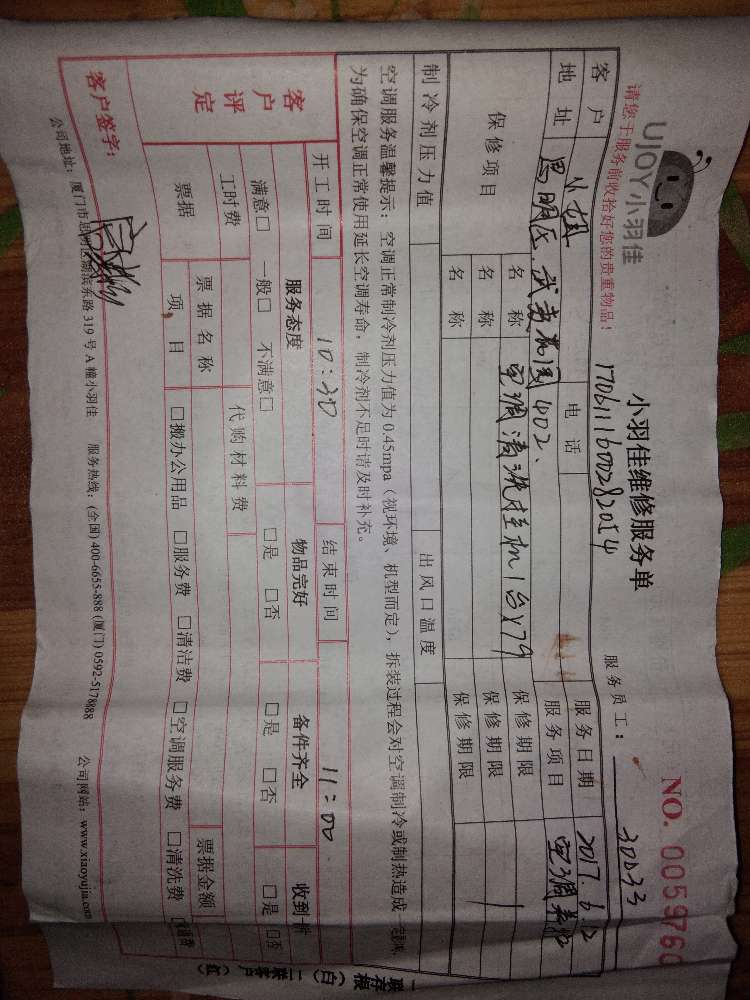 UJOY小羽佳
小羽佳维修服务单
NO. 0059760
请您于服务前收拾好您的贵重物品！
服务员工： 30D33
客户 小姐 电话 服务日期 2017.6.12
地址 思明区 402、 服务项目 空调
保修项目 名称 空调清洗挂机1台x79 保修期限
名称 保修期限
名称 保修期限
制冷剂压力值 出风口温度
空调服务温馨提示：空调正常制冷剂压力值为 0.45mpa（视环境、机型而定），拆装过程会对空调制冷或制热造成
为确保空调正常使用延长空调寿命，制冷剂不足时请及时补充。
开工时间 10:30 结束时间 11:00
客户评定
服务态度 物品完好 备件齐全 收到
满意□ 一般□ 不满意□ □是 □否 □是 □否 □是 □否
工时费 代购材料费
票据 票据名称 票据金额
项目 □搬办公用品 □服务费 □清洁费 □空调服务费 □清洗费
客户签字：
公司地址：厦门市思明区湖滨东路 319 号 A 幢小羽佳 服务热线：(全国) 400-6655-888 (厦门) 0592-5178888 公司网站：www.xiaoyujia.com
一联存根（白）二联客户（红）